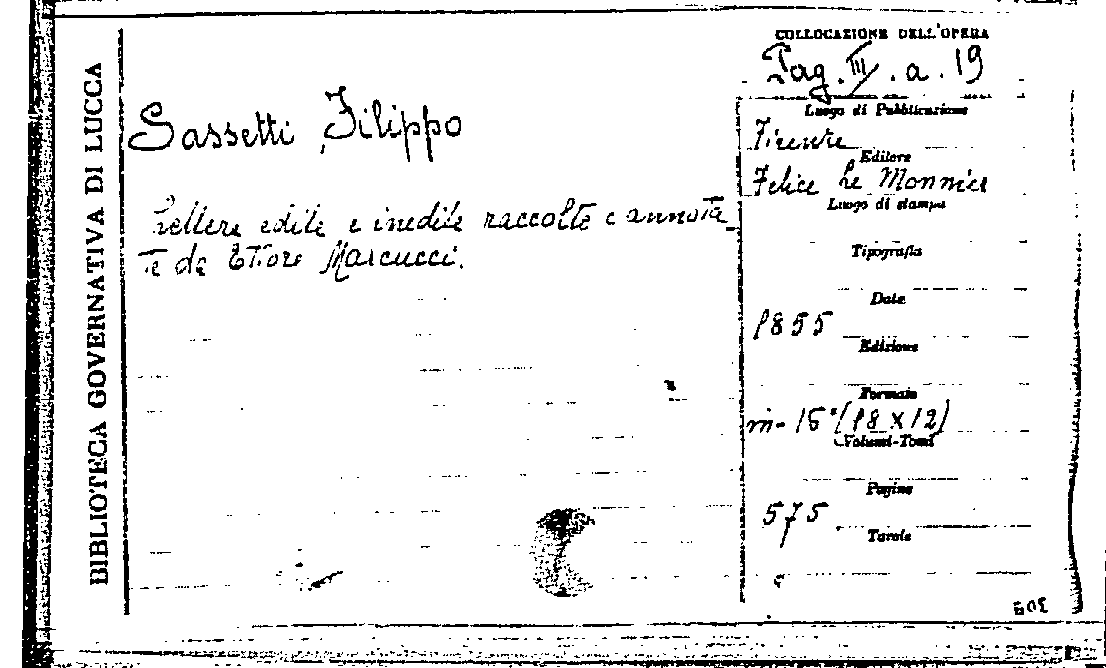 BIBLIOTECA GOVERNATIVA DI LUCCA
Sassetti, Filippo
Lettere edite e inedite raccolte e annota
te da Ettore Marcucci.
COLLOCAZIONE DELL'OPERA
Pag. III. a. 19
Luogo di Pubblicazione
Firenze
Editore
Felice Le Monnier
Luogo di stampa
Tipografia
Data
1855
Edizione
Formato
in-16°(18 X 12)
Volumi-Tomi
Pagine
575
Tavole